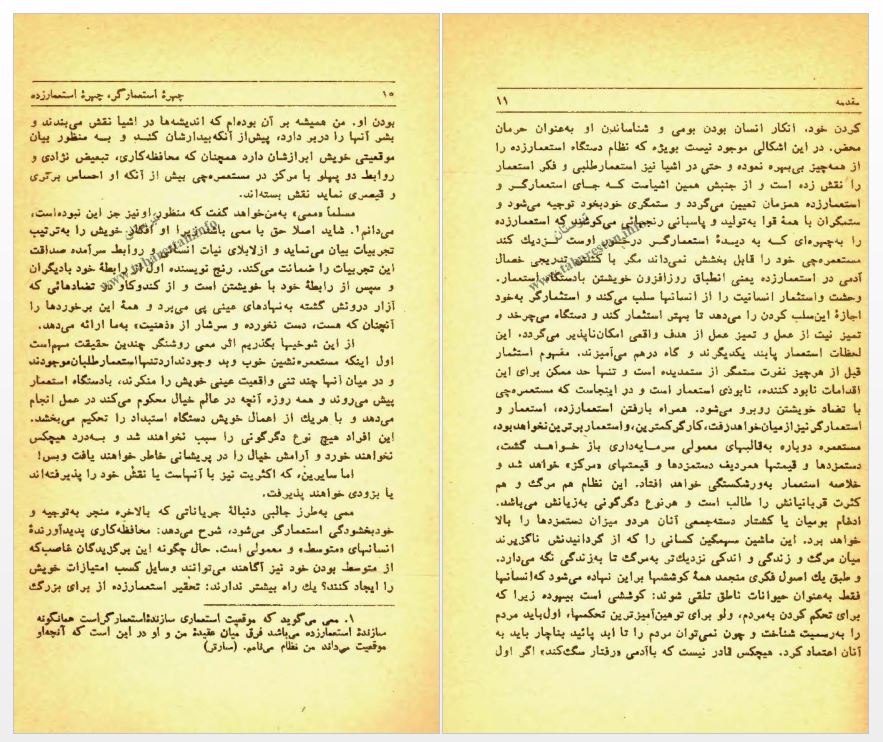 ۱۰ چهرهٔ استعمارگر، چهرهٔ استعمارزده
بودن او. من همیشه بر آن بوده‌ام که اندیشه‌ها در اشیا نقش می‌بندند و
بشر آنها را دربر دارد، پیش‌از آنکه بیدارشان کند و به منظور بیان
موقعیتی خویش ابرازشان دارد همچنان که محافظه‌کاری، تبعیض نژادی و
روابط دو پهلو با مرکز در مستعمره‌چی پیش از آنکه او احساس برتری
و قیصری نماید نقش بسته‌اند.
مسلماً «ممی» به‌من‌خواهد گفت که منظور اونیز جز این نبوده‌است،
می‌دانم۱. شاید اصلا حق با ممی باشد زیرا او افکار خویش را به‌ترتیب
تجربیات بیان می‌نماید و ازلابلای نیات انسانی و روابط سرآمده صداقت
این تجربیات را ضمانت می‌کند. رنج نویسنده اول از رابطهٔ خود بادیگران
و سپس از رابطهٔ خود با خویشتن است و از کندوکاو در تضادهائی که
آزار درونش گشته به‌نهادهای عینی پی می‌برد و همهٔ این برخوردها را
آنچنان که هست، دست نخورده و سرشار از «ذهنیت» به‌ما ارائه می‌دهد.
از این شوخیها بگذریم اثر ممی روشنگر چندین حقیقت مهم‌است
اول اینکه مستعمره‌نشین خوب وبد وجودنداردتنهااستعمارطلبان‌موجودند
و در میان آنها چند تنی واقعیت عینی خویش را منکرند، بادستگاه استعمار
پیش می‌روند و همه روزه آنچه در عالم خیال محکوم می‌کند در عمل انجام
می‌دهد و با هریك از اعمال خویش دستگاه استبداد را تحکیم می‌بخشد.
این افراد هیچ نوع دگرگونی را سبب نخواهند شد و به‌درد هیچکس
نخواهند خورد و آرامش خیال را در پریشانی خاطر خواهند یافت وبس!
اما سایرین، که اکثریت نیز با آنهاست یا نقش خود را پذیرفته‌اند
یا بزودی خواهند پذیرفت.
ممی به‌طرز جالبی دنبالهٔ جریاناتی که بالاخره منجر به‌توجیه و
خودبخشودگی استعمارگر می‌شود، شرح می‌دهد: محافظه‌کاری پدیدآورندهٔ
انسانهای «متوسط» و معمولی است. حال چگونه این برگزیدگان غاصب‌که
از متوسط بودن خود نیز آگاهند می‌توانند وسایل کسب امتیازات خویش
را ایجاد کنند؟ یك راه بیشتر ندارند: تحقیر استعمارزده از برای بزرگ
۱. ممی می‌گوید که موقعیت استعماری سازندهٔ‌استعمارگراست همانگونه
سازندهٔ استعمارزده می‌باشد فرق میان عقیدهٔ من و او در این است که آنچه‌او
موقعیت می‌داند من نظام می‌نامم. (سارتر)
مقدمه ۱۱
کردن خود، انکار انسان بودن بومی و شناساندن او به‌عنوان حرمان
محض. در این اشکالی موجود نیست بویژه که نظام دستگاه استعمارزده را
از همه‌چیز بی‌بهره نموده و حتی در اشیا نیز استعمارطلبی و فکر استعمار
را نقش زده است و از جنبش همین اشیاست که جای استعمارگر و
استعمارزده همزمان تعیین می‌گردد و ستمگری خودبخود توجیه می‌شود و
ستمگران با همهٔ قوا به‌تولید و پاسبانی رنجهائی می‌کوشند که استعمارزده
را به‌چهره‌ای که به دیدهٔ استعمارگر درخور اوست نزدیك کند
مستعمره‌چی خود را قابل بخشش نمی‌داند مگر با کشتن تدریجی خصال
آدمی در استعمارزده یعنی انطباق روزافزون خویشتن بادستگاه استعمار.
وحشت واستثمار انسانیت را از انسانها سلب می‌کند و استثمارگر به‌خود
اجازهٔ این‌سلب کردن را می‌دهد تا بهتر استثمار کند و دستگاه می‌چرخد و
تمیز نیت از عمل و تمیز عمل از هدف واقعی امکان‌ناپذیر می‌گردد. این
لحظات استعمار پابند یکدیگرند و گاه درهم می‌آمیزند. مفهوم استثمار
قبل از هرچیز نفرت ستمگر از ستمدیده است و تنها حد ممکن برای این
اقدامات نابود کننده، نابودی استعمار است و در اینجاست که مستعمره‌چی
با تضاد خویشتن روبرو می‌شود. همراه بارفتن استعمارزده، استعمار و
استعمارگر نیز ازمیان‌خواهدرفت،کارگرکمترین،واستعمار‌برترین‌نخواهدبود،
مستعمره دوباره به‌قالبهای معمولی سرمایه‌داری باز خواهد گشت،
دستمزدها و قیمتها همردیف دستمزدها و قیمتهای «مرکز» خواهد شد و
خلاصه استعمار به‌ورشکستگی خواهد افتاد. این نظام هم مرگ و هم
کثرت قربانیانش را طالب است و هرنوع دگرگونی به‌زیانش می‌باشد.
ادغام بومیان یا کشتار دسته‌جمعی آنان هردو میزان دستمزدها را بالا
خواهد برد. این ماشین سهمگین کسانی را که از گردانیدنش ناگزیرند
میان مرگ و زندگی و اندکی نزدیك‌تر به‌مرگ تا به‌زندگی نگه می‌دارد.
و طبق یك اصول فکری منجمد همهٔ کوششها براین نهاده می‌شود که‌انسانها
فقط به‌عنوان حیوانات ناطق تلقی شوند: کوششی است بیهوده زیرا که
برای تحکم کردن به‌مردم، ولو برای توهین‌آمیزترین تحکمها، اول‌باید مردم
را به‌رسمیت شناخت و چون نمی‌توان مردم را تا ابد پائید بناچار باید به
آنان اعتماد کرد. هیچکس قادر نیست که باآدمی «رفتار سگ‌کند» اگر اول